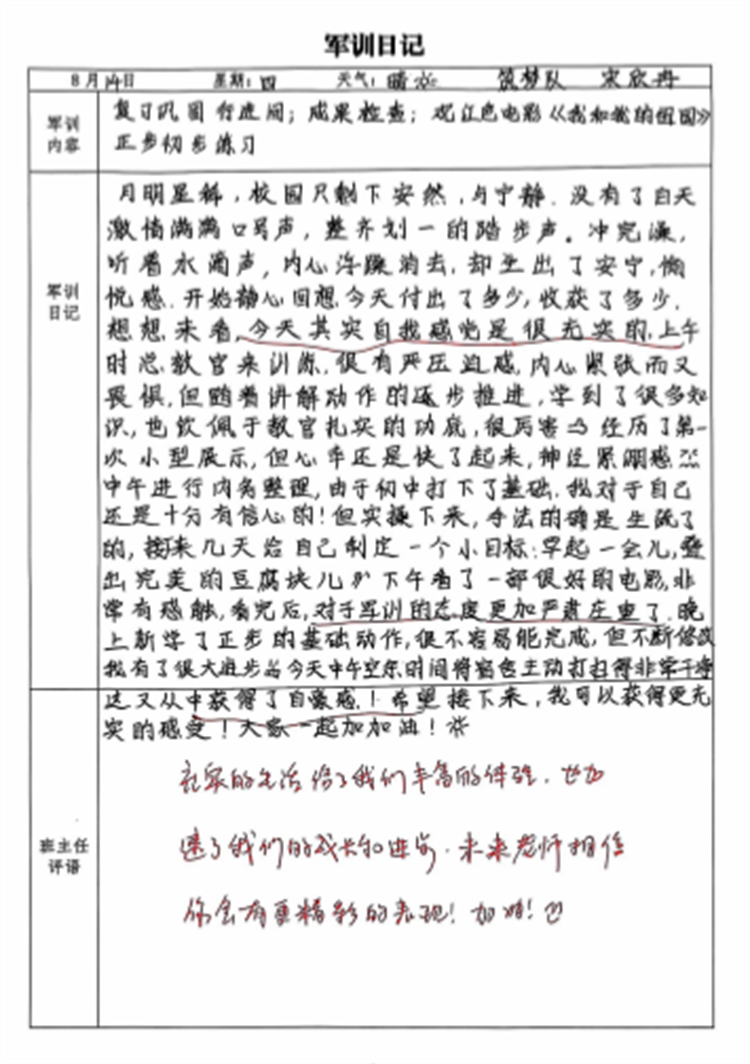 军训日记
8月14日 星期:四 天气:晴 筑梦队 宋欣冉
军训内容
复习巩固行进间;成果检查;观红色电影《我和我的祖国》
正步初步练习
军训日记
月明星稀,校园只剩下安然,与宁静.没有了白天
激情满满口号声,整齐划一的踏步声。冲完澡,
听着水滴声,内心浮躁消去,却生出了安宁,愉
悦感.开始静心回想今天付出了多少,收获了多少.
想想来看,今天其实自我感觉是很充实的.上午
时总教官来训练,很有严压迫感,内心紧张而又
畏惧,但随着讲解动作的逐步推进,学到了很多知
识,也钦佩于教官扎实的功底,很厉害 经历了第一
次小型展示,但心率还是快了起来,神经紧绷感
中午进行内务整理,由于初中打下了基础.我对于自己
还是十分有信心的!但实操下来,手法的确是生疏了
的,接下来几天给自己制定一个小目标:早起一会儿,叠
出完美的豆腐块儿 下午看了一部很好的电影,非
常有感触,看完后,对于军训的态度更加严肃庄重了.晚
上新学了正步的基础动作,很不容易能完成,但不断修改
我有了很大进步 今天中午空余时间将宿舍主动打扫得非常干净
这又从中获得了自豪感!希望接下来,我可以获得更充
实的感受!大家一起加加油!
班主任评语
充实的生活给了我们丰富的体验.也加
速了我们的成长和进步.未来老师相信
你会有更精彩的表现!加油!